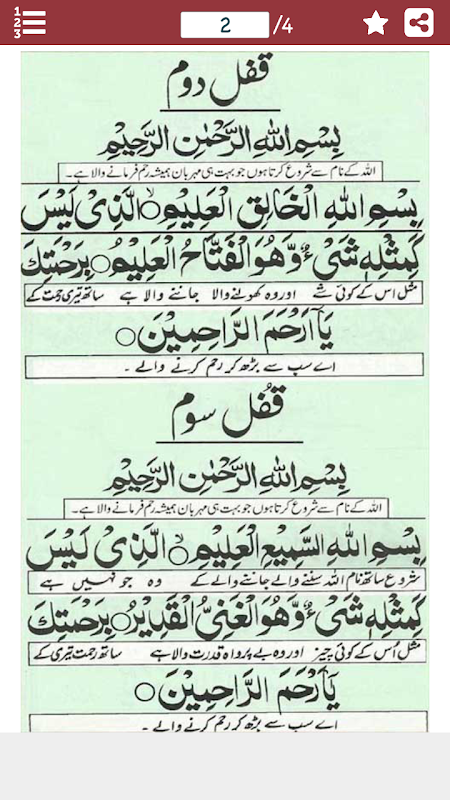 1
2
3
2 /4
قفل دوم
بِسْمِ اللهِ الرَّحْمٰنِ الرَّحِيْمِ
اللہ کے نام سے شروع کرتا ہوں جو بہت ہی مہربان ہمیشہ رحم فرمانے والا ہے۔
بِسْمِ اللهِ الْخَالِقِ الْعَلِيْمِ○ الَّذِىْ لَيْسَ
كَمِثْلِهٖ شَىْءٌ وَّهُوَ الْفَتَّاحُ الْعَلِيْمُ○ بِرَحْمَتِكَ
مثل اس کے کوئی شے اور وہ کھولنے والا جاننے والا ہے ساتھ تیری رحمت کے
يَآ اَرْحَمَ الرَّاحِمِيْنَ○
اے سب سے بڑھ کر رحم کرنے والے ۔
قُفل سوم
بِسْمِ اللهِ الرَّحْمٰنِ الرَّحِيْمِ
اللہ کے نام سے شروع کرتا ہوں جو بہت ہی مہربان ہمیشہ رحم فرمانے والا ہے۔
بِسْمِ اللهِ السَّمِيْعِ الْعَلِيْمِ○ الَّذِىْ لَيْسَ
شروع ساتھ نام اللہ سننے والے جاننے والے کے وہ جو نہیں ہے
كَمِثْلِهٖ شَىْءٌ وَّهُوَ الْغَنِىُّ الْقَدِيْرُ○ بِرَحْمَتِكَ
مثل اُس کے کوئی چیز اور وہ بے پرواہ قدرت والا ہے ساتھ رحمت تیری کے
يَآاَرْحَمَ الرَّاحِمِيْنَ○
اے سب سے بڑھ کر رحم کرنے والے۔